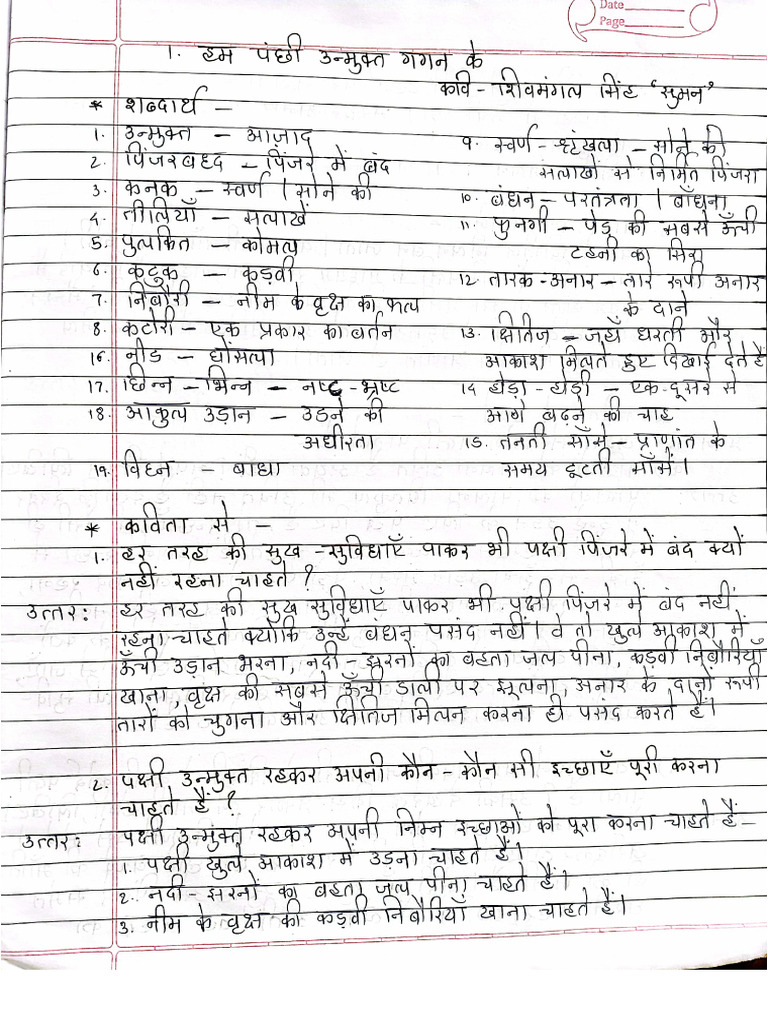 Date
Page
1. हम पंछी उन्मुक्त गगन के
कवि - शिवमंगल सिंह 'सुमन'
* शब्दार्थ -
1. उन्मुक्त - आज़ाद
2. पिंजरबद्ध - पिंजरे में बंद
3. कनक - स्वर्ण / सोने की
4. तीलियाँ - सलाखें
5. पुलकित - कोमल
6. कटुक - कड़वी
7. निबौरी - नीम के वृक्ष का फल
8. कटोरी - एक प्रकार का बर्तन
16. नीड - घोंसला
17. छिन्न - भिन्न - नष्ट-भ्रष्ट
18. आकुल उड़ान - उड़ने की
अधीरता
19. विघ्न - बाधा
9. स्वर्ण - श्रृंखला - सोने की
सलाखों से निर्मित पिंजरा
10. बंधन - परतंत्रता / बाँधना
11. फुनगी - पेड़ की सबसे ऊँची
टहनी का सिरा
12. तारक-अनार - तारे रूपी अनार
के दाने
13. क्षितिज - जहाँ धरती और
आकाश मिलते हुए दिखाई देते हैं
14 होड़ा-होड़ी - एक-दूसरे से
आगे बढ़ने की चाह
15. तनती साँसे - प्राणांत के
समय टूटती साँसें।
* कविता से :-
1. हर तरह की सुख-सुविधाएँ पाकर भी पक्षी पिंजरे में बंद क्यों
नहीं रहना चाहते ?
उत्तर: हर तरह की सुख सुविधाएँ पाकर भी पक्षी पिंजरे में बंद नहीं
रहना चाहते क्योंकि उन्हें बंधन पसंद नहीं। वे तो खुले आकाश में
ऊँची उड़ान भरना, नदी - झरनों का बहता जल पीना, कड़वी निबौरियाँ
खाना, वृक्ष की सबसे ऊँची डाली पर झूलना, अनार के दानों रूपी
तारों को चुगना और क्षितिज मिलन करना ही पसंद करते हैं।
2. पक्षी उन्मुक्त रहकर अपनी कौन - कौन सी इच्छाएँ पूरी करना
चाहते हैं ?
उत्तर: पक्षी उन्मुक्त रहकर अपनी निम्न इच्छाओं को पूरा करना चाहते हैं-
1. पक्षी खुले आकाश में उड़ना चाहते हैं।
2. नदी - झरनों का बहता जल पीना चाहते हैं।
3. नीम के वृक्ष की कड़वी निबौरियाँ खाना चाहते हैं।